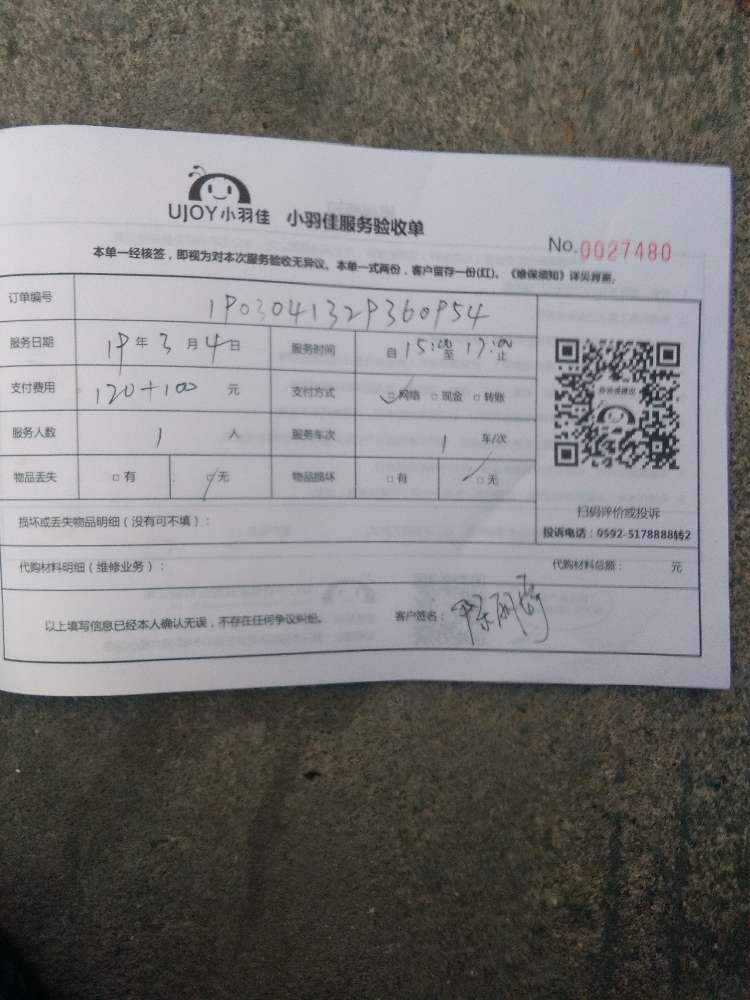 UJOY小羽佳 小羽佳服务验收单
No.0027480
本单一经核签，即视为对本次服务验收无异议。本单一式两份，客户留存一份(红)。《维保须知》详见背面。
订单编号 1903041329360954
服务日期 19年3月4日 服务时间 自15:00至17:00止
支付费用 120+100 元 支付方式 ✓□网络 □现金 □转账
服务人数 1 人 服务车次 1 车/次
物品丢失 □有 ✓□无 物品损坏 □有 ✓□无
扫码评价或投诉
投诉电话：0592-5178888转2
损坏或丢失物品明细（没有可不填）：
代购材料明细（维修业务）： 代购材料总额： 元
以上填写信息已经本人确认无误，不存在任何争议纠纷。 客户签名：